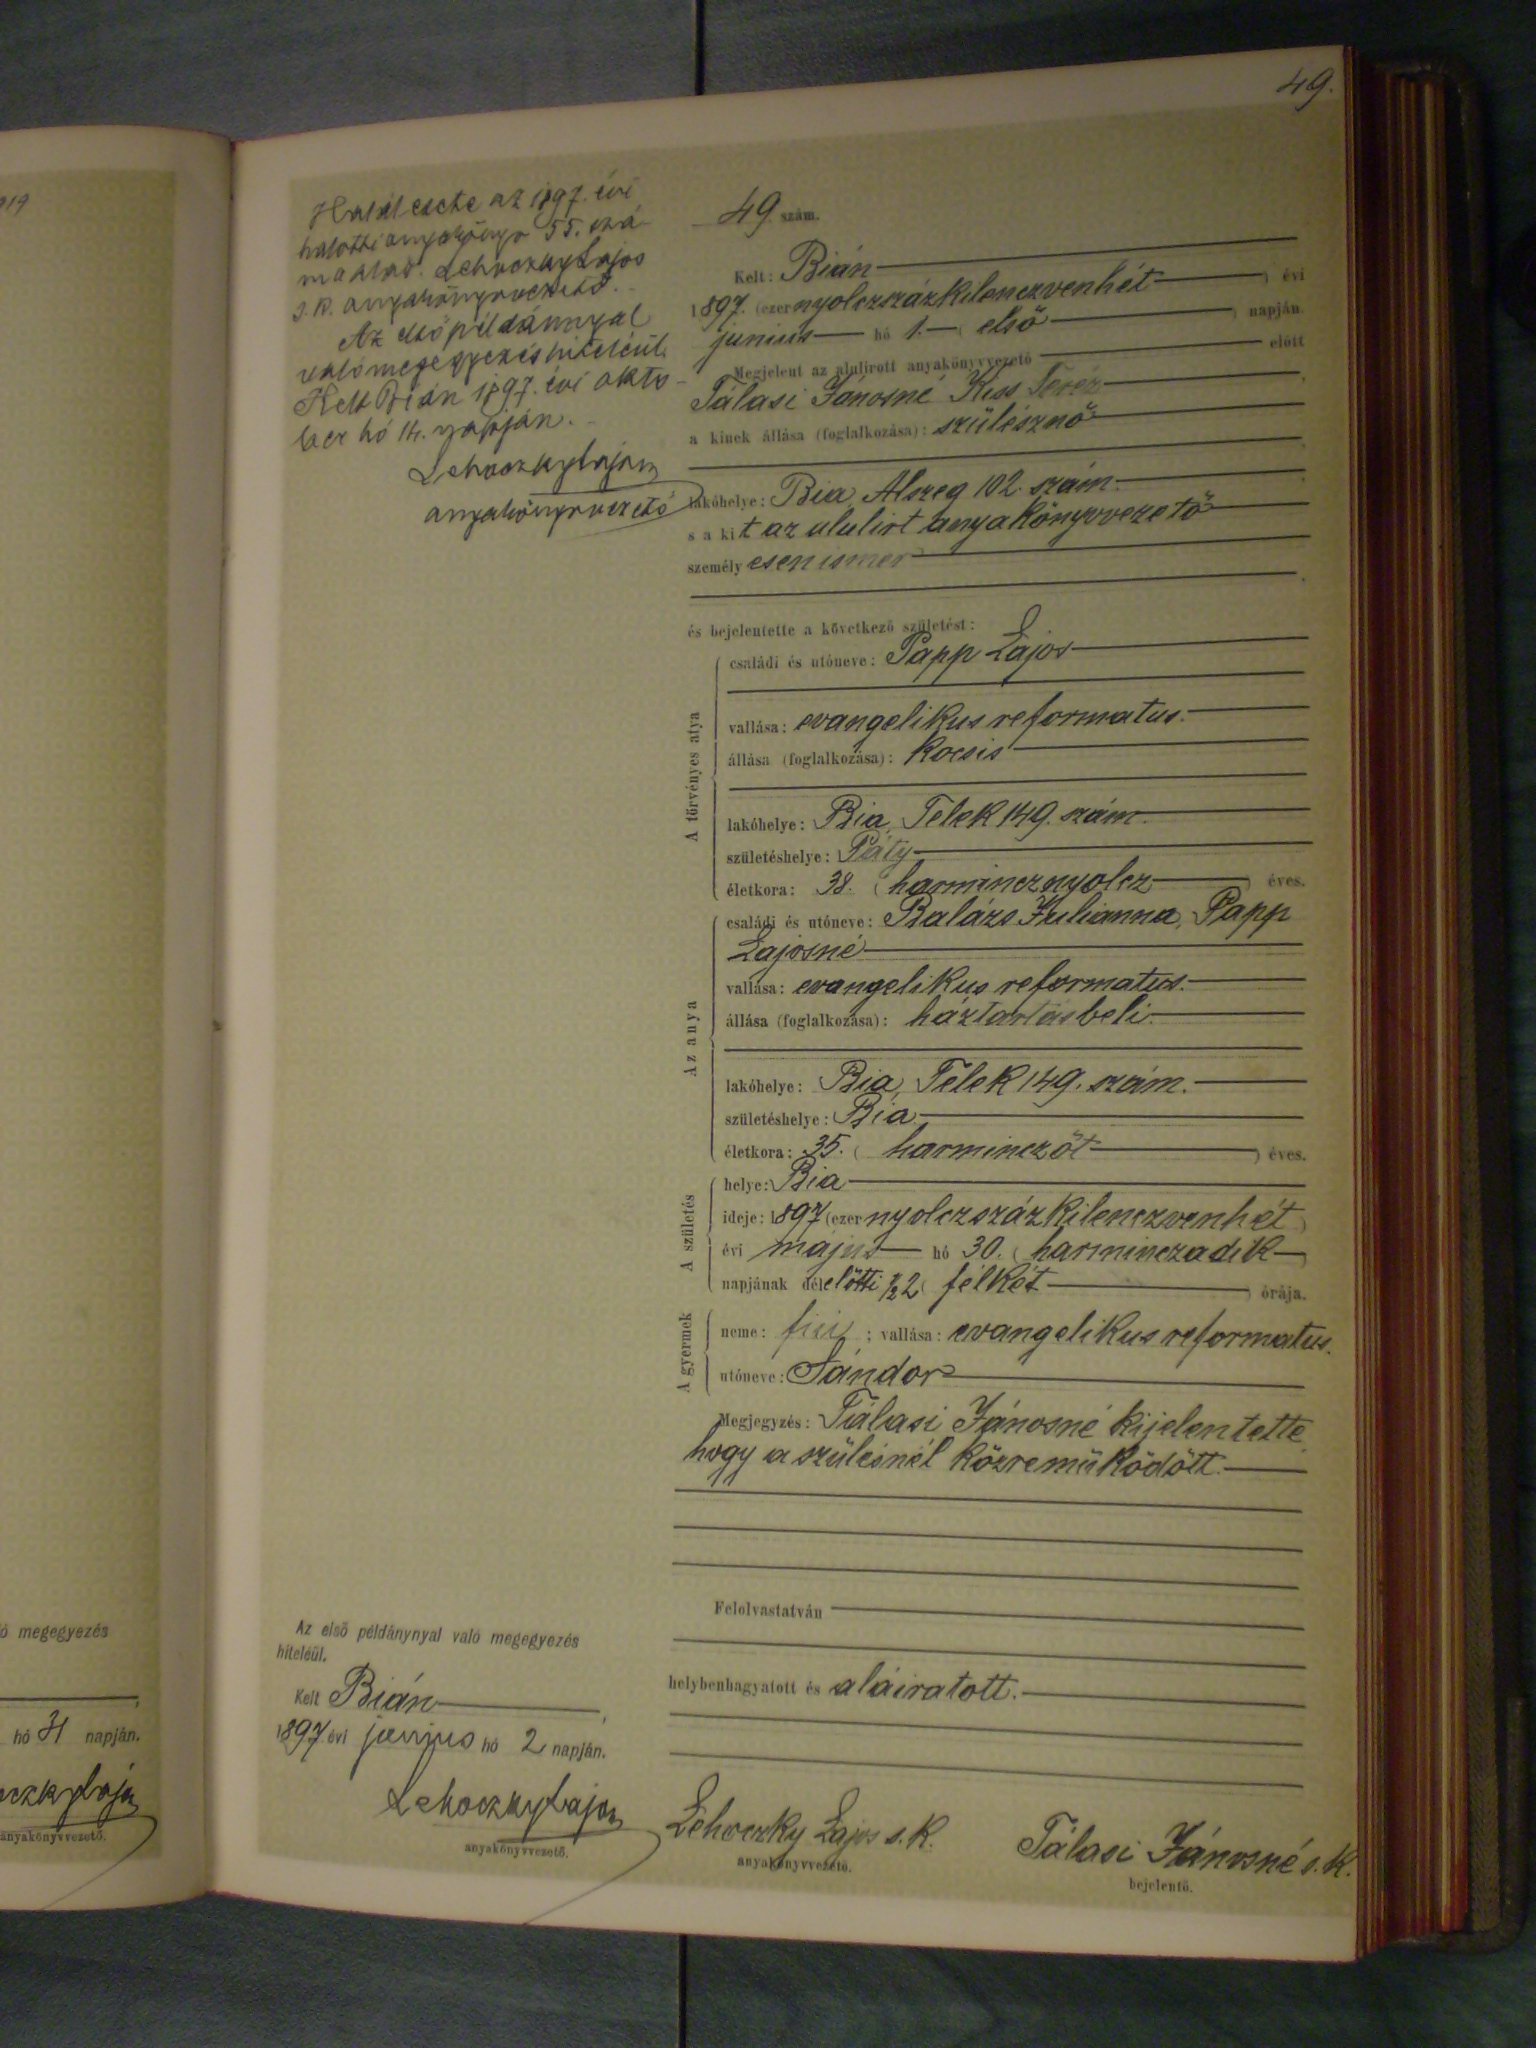 49.
919
Halálesete az 1897. évi
halotti anyakönyv 55. szá-
m alatt. Lehoczky Lajos
s. k. anyakönyvvezető.
Az első példánnyal
való megegyezés hiteléül.
Kelt Bián 1897. évi okto-
ber hó 14. napján.
Lehoczky Lajos
anyakönyvvezető
49. szám.
Kelt: Bián
1897. (ezernyolczszázkilenczvenhét) évi
junius hó 1. (első) napján.
Megjelent az alulirott anyakönyvvezető előtt
Tálasi Jánosné Kiss Teréz
a kinek állása (foglalkozása): szülésznő
lakóhelye: Bia, Alszeg 102. szám.
s a kit az alulirt anyakönyvvezető
személyesen ismer
és bejelentette a következő születést:
A törvényes atya
családi és utóneve: Papp Lajos
vallása: evangelikus reformatus.
állása (foglalkozása): kocsis
lakóhelye: Bia, Telek 149. szám.
születéshelye: Páty
életkora: 38. (harmincznyolcz) éves.
Az anya
családi és utóneve: Balázs Julianna, Papp
Lajosné
vallása: evangelikus reformatus.
állása (foglalkozása): háztartásbeli.
lakóhelye: Bia, Telek 149. szám.
születéshelye: Bia
életkora: 35. (harminczöt) éves.
A születés
helye: Bia
ideje: 1897 (ezernyolczszázkilenczvenhét)
évi május hó 30. (harminczadik)
napjának délelőtti ½2 (félkét) órája.
A gyermek
neme: fiú; vallása: evangelikus reformatus.
utóneve: Sándor
Megjegyzés: Tálasi Jánosné kijelentette
hogy a szülésnél közreműködött.
Felolvastatván
helybenhagyatott és aláiratott.
Az első példánynyal való megegyezés
hiteléül.
Kelt Bián,
1897 évi junius hó 2 napján.
Lehoczky Lajos
anyakönyvvezető.
Lehoczky Lajos s. k.
anyakönyvvezető.
Tálasi Jánosné s. k.
bejelentő.
ó megegyezés
hó 31 napján.
anyakönyvvezető.